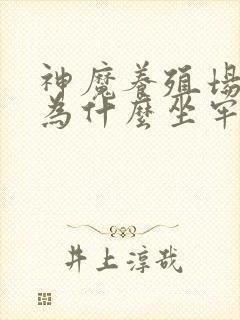 神魔養殖場
為什麼坐牢
井上淳哉